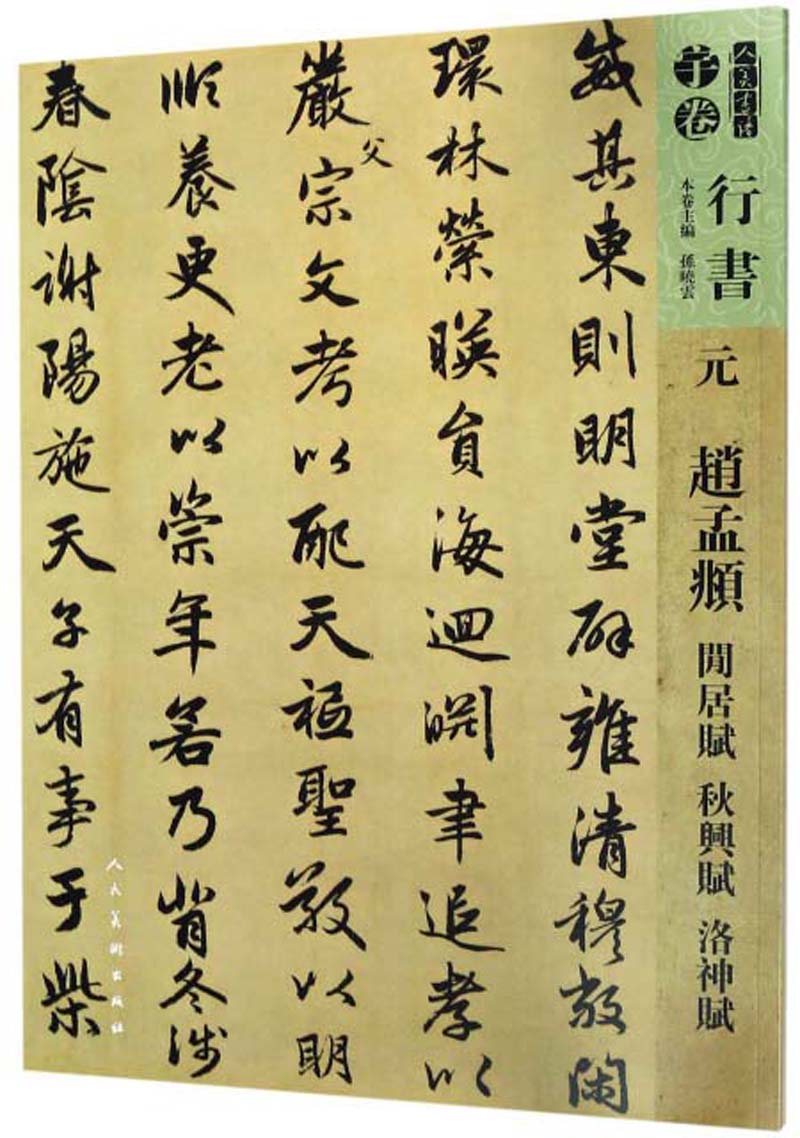 人美書譜
子卷
行書
本卷主編 孫曉雲
元
趙孟頫
閒居賦 秋興賦 洛神賦
威其東則明堂辟雍清穆敞閑
環林縈暎員海迴淵聿追孝以
嚴父宗文考以配天祗聖敬以明
順養更老以崇年若乃背冬涉
春陰謝陽施天子有事于柴
人民美術出版社